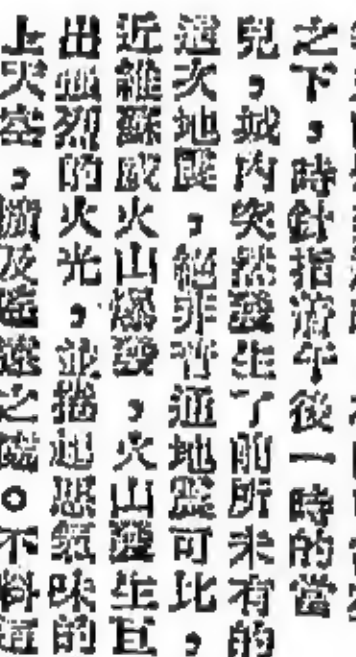 之下，時針指濟午後一時的當
兒，城內突然發生了前所未有的
這次地震，絕非普通地震可比，
近維蘇威火山爆發，火山發生巨
出強烈的火光，並捲起惡氣味的
上天空，擴及遙遠之。不料這